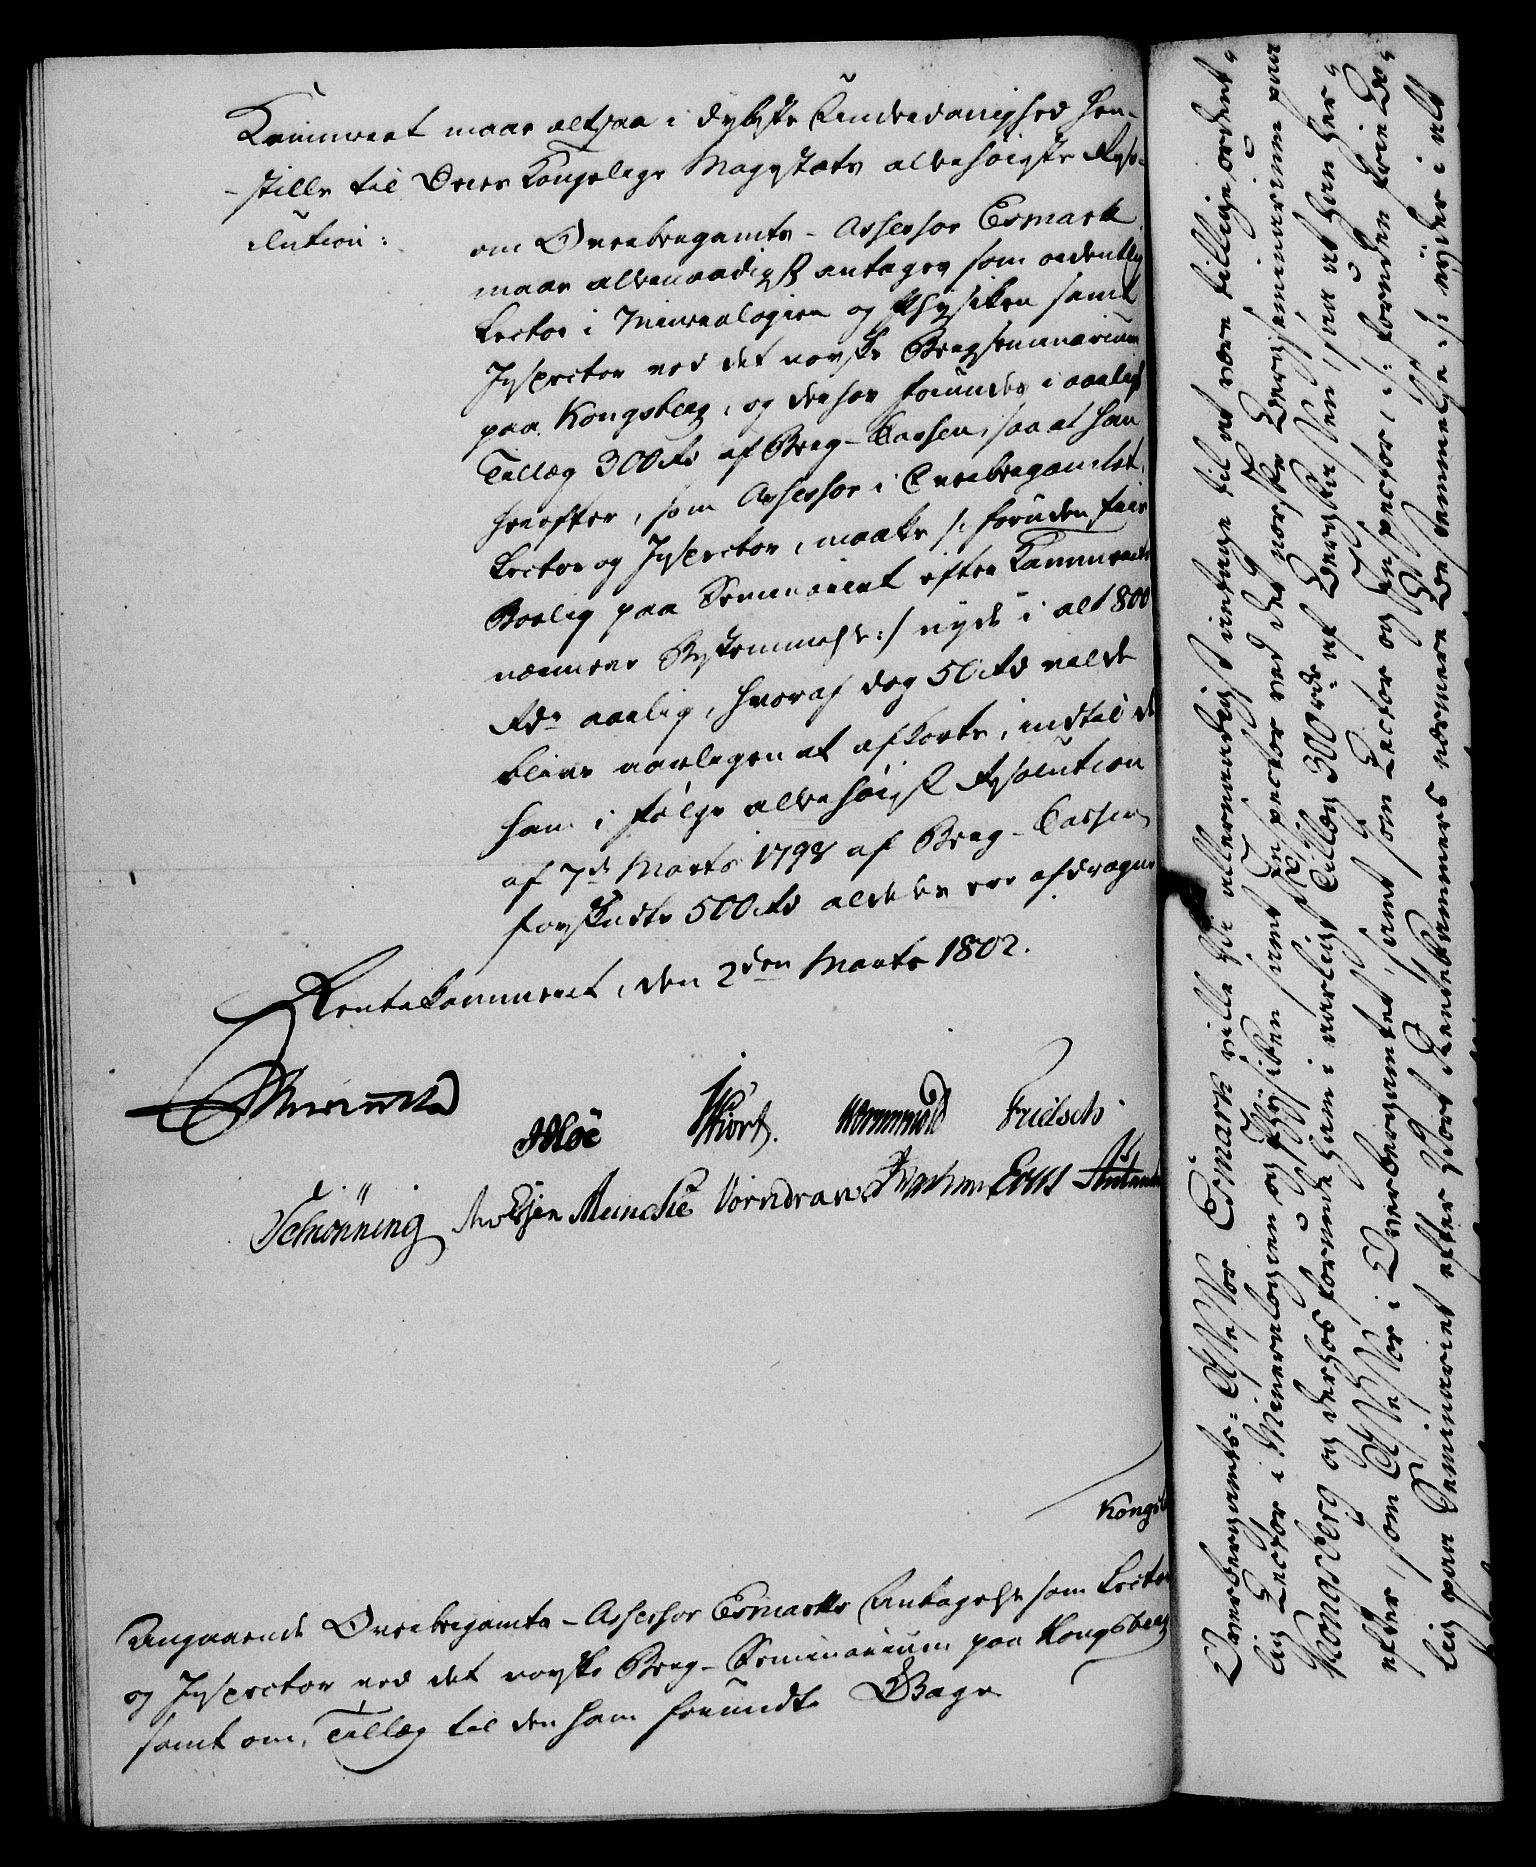 Kammeret maae altsaa i dybeste Underdanighed hen-
-stille til Deres Kongelige Majestæts allerhøieste Reso-
-lution:
om Overbergamts-Assessor Esmark
maae allernaadigst antages som ordentlig
Lector i Mineralogien og Physiken samt
Inspecteur ved det norske Bergseminarium
paa Kongsberg, og derhos forundes i aarligt
Tillæg 300 rd af Berg-Cassen, saa at han
herefter, som Assessor i Overbergamtet,
Lector og Inspector, maatte /: foruden frie
Boelig paa Seminariet efter Kammerets
nærmere Bestemmelse :/ nyde i alt 800
Rdr aarlig, hvoraf dog 50 rd
blive aarligen at afkorte, indtil de
ham i følge allerhøiest Resolution
af 7de Marts 1798 af Berg-Cassen
forskudte 500 rd aldeles ere afdragne
Rentekammeret, den 2den Marts 1802.
JHoë Hiort. Wormskiold Frielsch
Schiønning Munche Vorndran
Kongs
Angaaende Overbergamts-Assessor Esmarks Antagelse som Lector
og Inspector ved det norske Berg-Seminarium paa Kongsberg
samt om Tillæg til den ham forundte Gage
Overbergamts-Assessor Esmark ville Vi allernaadigst antage til at være tillige ordent-
lig Lector i Mineralogien og Physiken samt Inspector ved det norske Bergseminarium paa
Kongsberg og derhos forunde ham i aarligt Tillæg 300 rdr af Bergkassen, saa at han her-
efter, som Assessor i Overbergamtet, samt som Lector og Inspector, /: foruden frie Bo-
lig paa Seminariet efter Vort Rentekammers nærmere Bestemmelse :/ nyder i alt